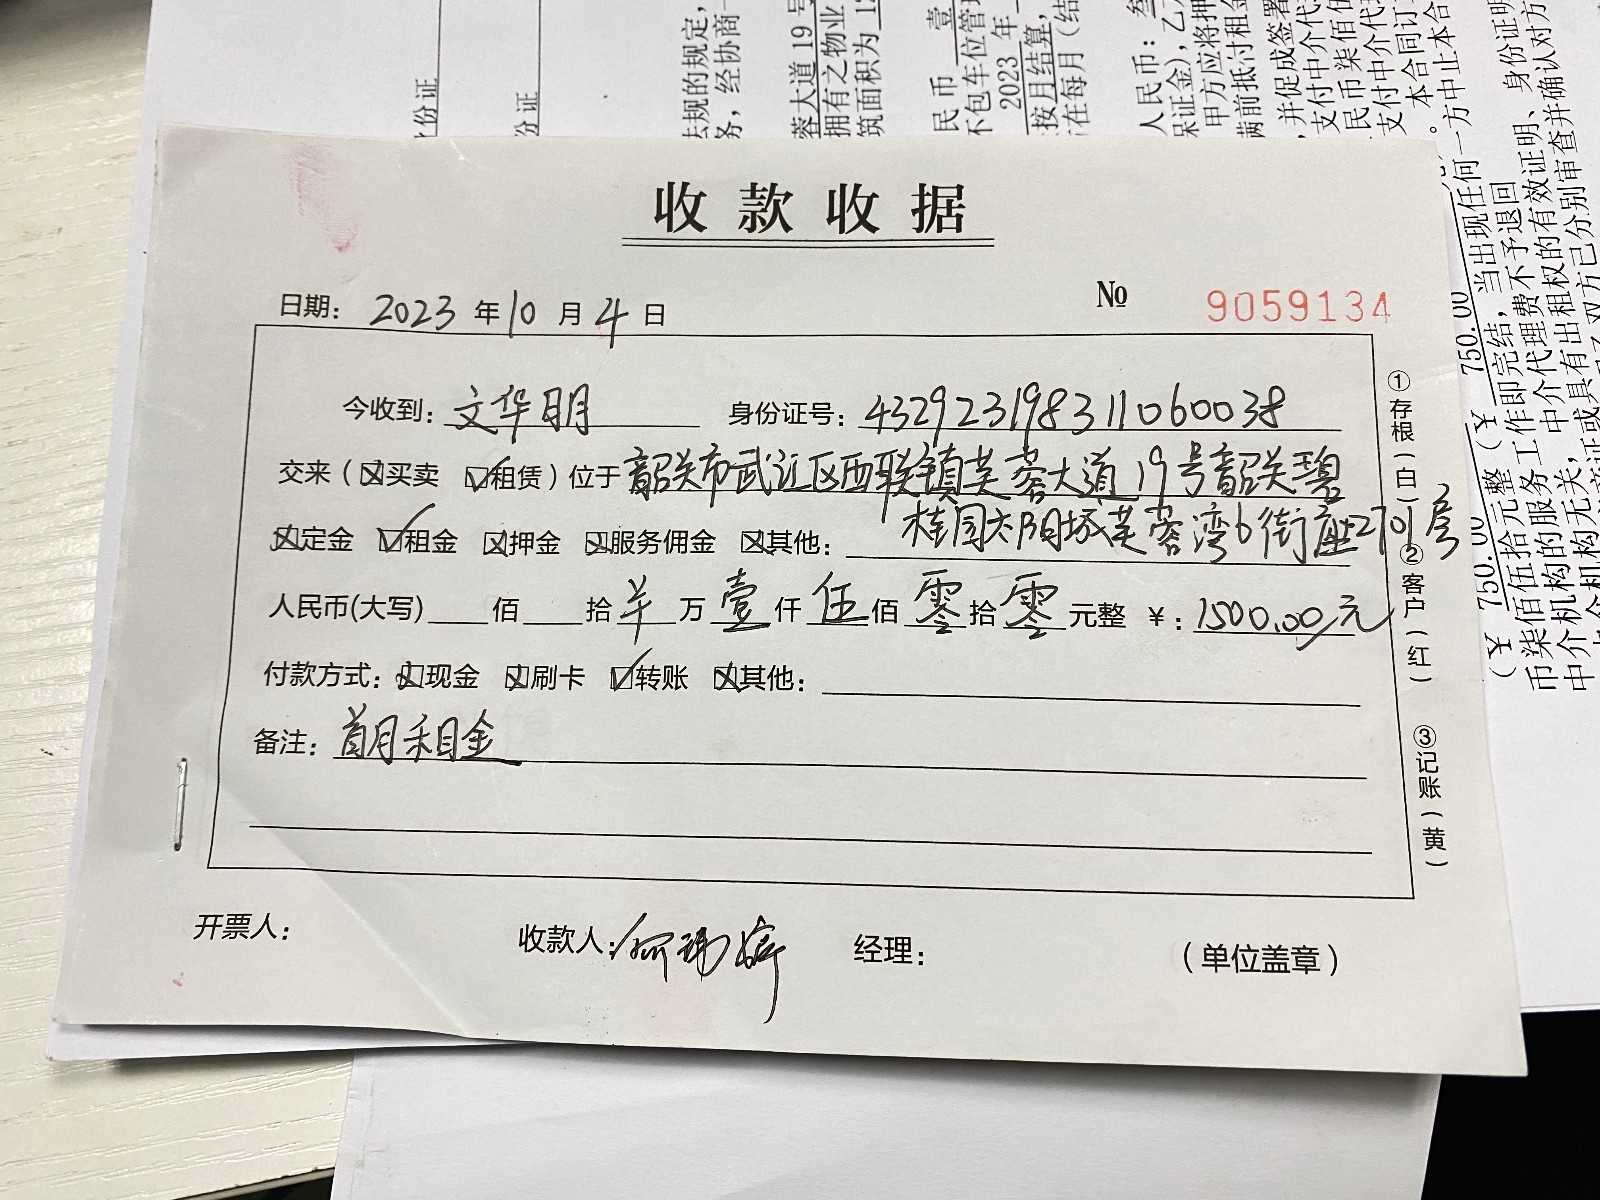 收款收据
日期： 2023 年 10 月 4 日 № 9059134
今收到：文华明 身份证号：432923198311060038
交来（☒买卖 ☑租赁）位于 韶关市武江区西联镇芙蓉大道19号韶关碧
桂园太阳城芙蓉湾6街座2701房
☒定金 ☑租金 ☒押金 ☒服务佣金 ☒其他：
人民币(大写) 佰 拾 羊 万 壹 仟 伍 佰 零 拾 零 元整 ￥：1500.00元
付款方式：☒现金 ☒刷卡 ☑转账 ☒其他：
备注：首月租金
开票人： 收款人： 经理： （单位盖章）
①存根（白）②客户（红）③记账（黄）
份证
份证
法规的规定，
务，经协商一
蓉大道 19 号
拥有之物业
筑面积为
民币 壹
不包车位管理
2023 年
按月结算，
在每月（结
人民币：叁
保证金），乙
甲方应将押
满前抵付租金
，并促成签署
支付中介代
民币柒佰伍
支付中介代理
本合同订
一方中止本合
（￥ 750.00
币柒佰伍拾元整（￥ 750.00
中介机构的服务工作即完结，当出现任何
中介机构无关，中介代理费不予退回
证或具有出租权的有效证明、身份证明
双方已分别审查并确认对方